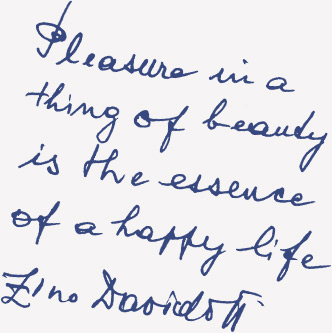 Pleasure in a
thing of beauty
is the essence
of a happy life
Zino Davidoff